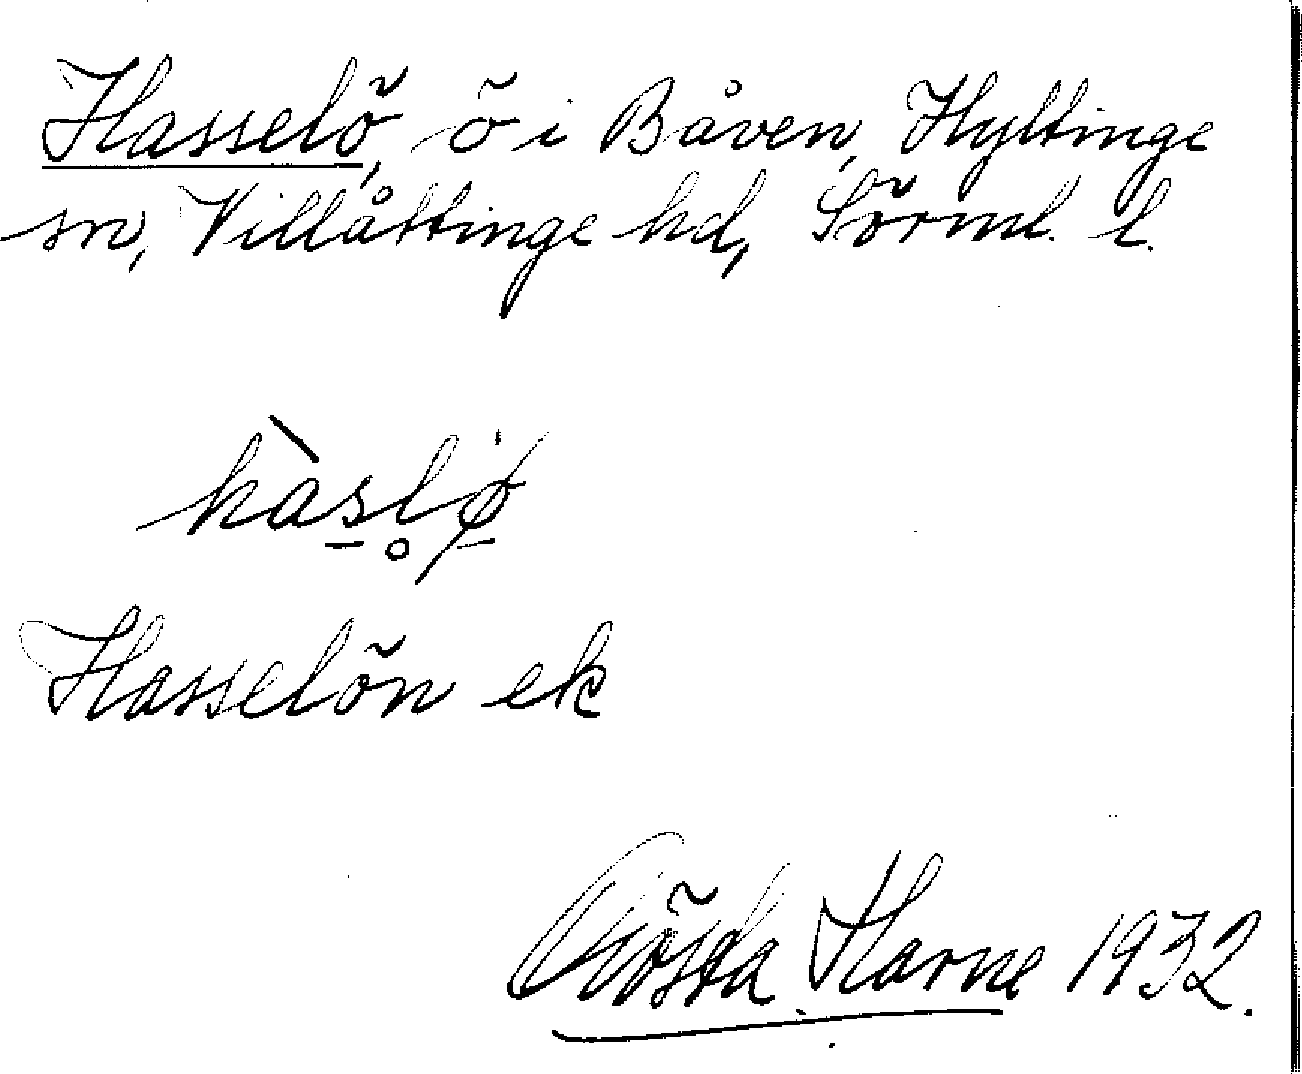 Hasselö, ö i Båven, Hyltinge
sn, Villåttinge hd, Sörml. l.
hàs̠l̥ø̠
Hasselön ek
Gösta Harne 1932.